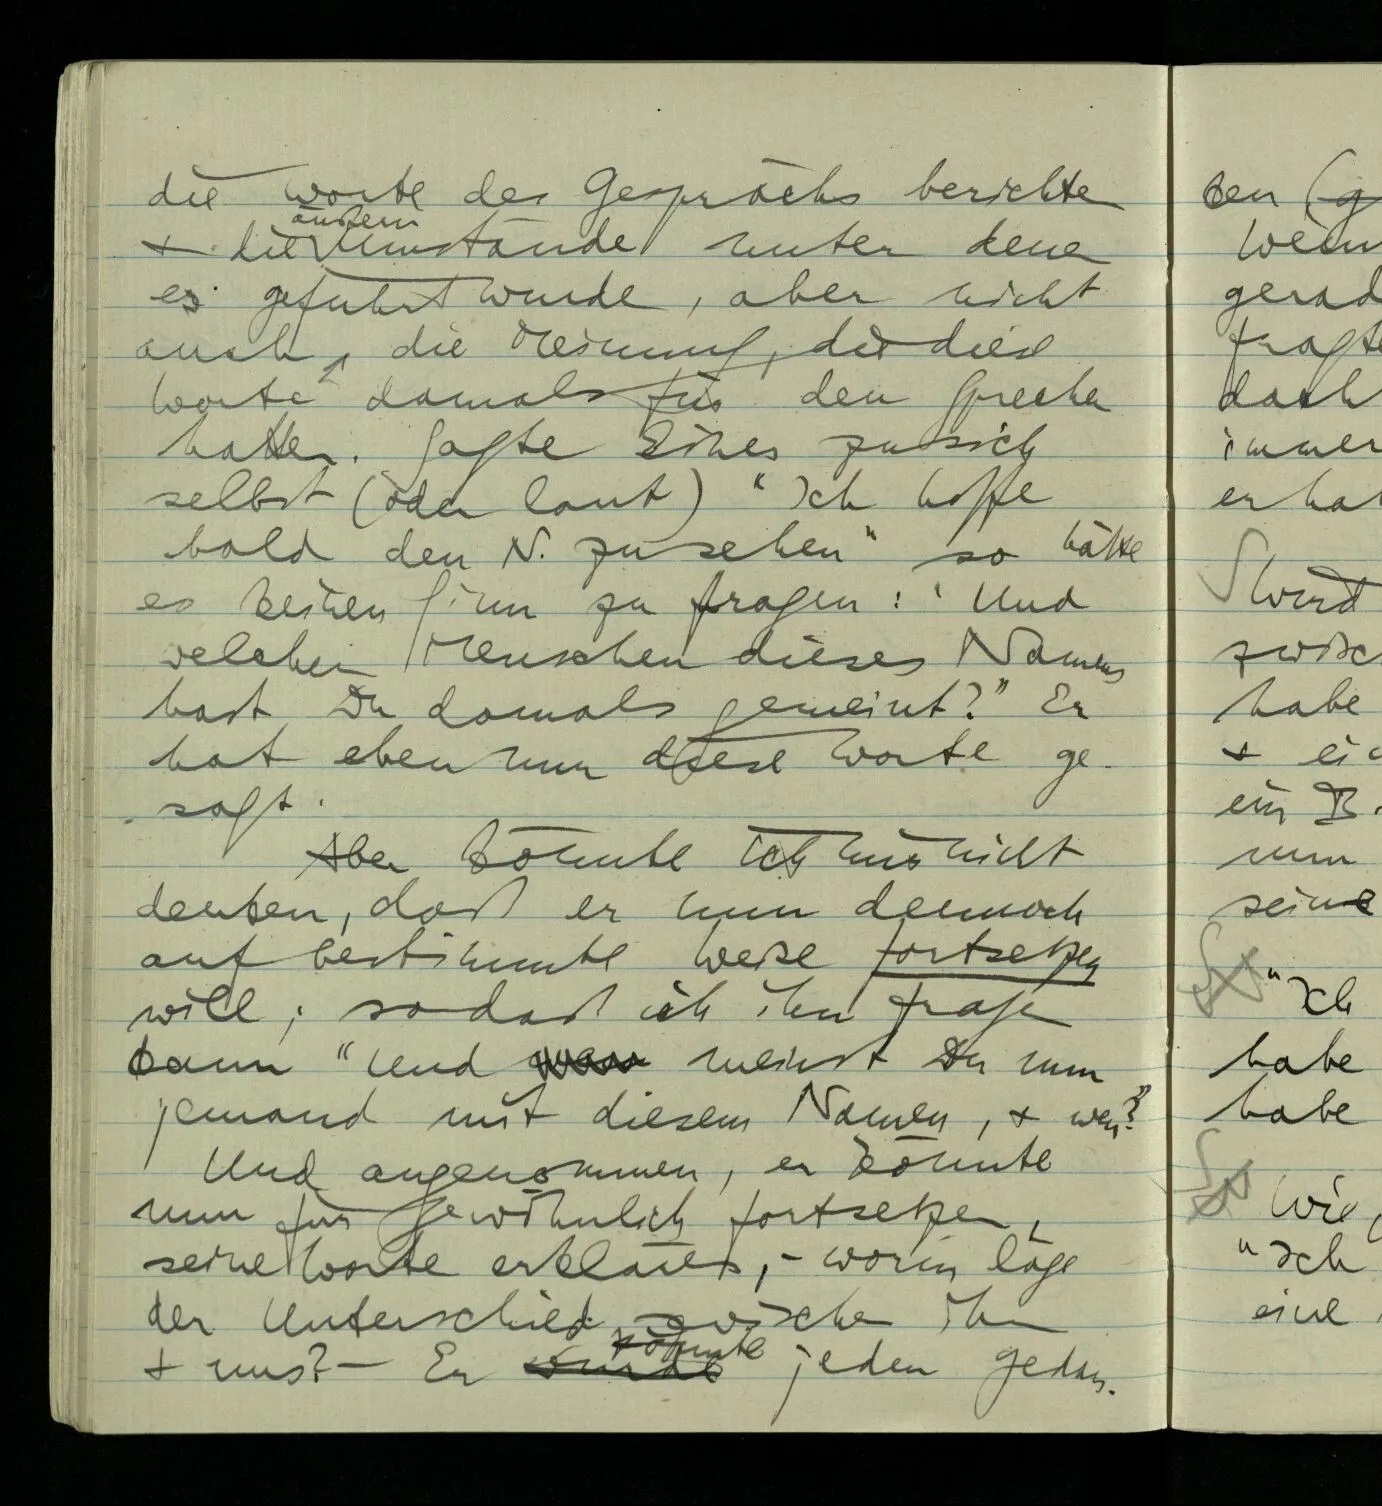 die Worte des Gesprächs berichte
äußern
+ die Umstände unter denen
es geführt wurde, aber nicht
auch, die Meinung, die diese
Worte damals für den Sprecher
hatten. Sagte Einer zu sich
selbst (oder laut) "Ich hoffe
bald den N. zu sehen" so hätte
es keinen Sinn zu fragen: "Und
welchen Menschen dieses Namens
hast Du damals gemeint?" Er
hat eben nur diese Worte ge-
sagt.
Aber könnte ich mir nicht
denken, daß er nun dennoch
auf bestimmte Weise fortsetzen
will; sodaß ich ihn fragen
kann "Und meinst Du nun
jemand mit diesem Namen, + wen?"
Und angenommen, er könnte
nun für gewöhnlich fortsetzen,
seine Worte erklären, – worin läge
der Unterschied zwischen ihm
könnte
+ uns? – Er würde jeden Gedan-
ken (g
Wenn
gerad
fragte
doch
immer
er hat
S Wird
zwisch
habe
+ ei
ein B.
nun
seine
"Ich
habe
habe
Wie,
"Ich
eine